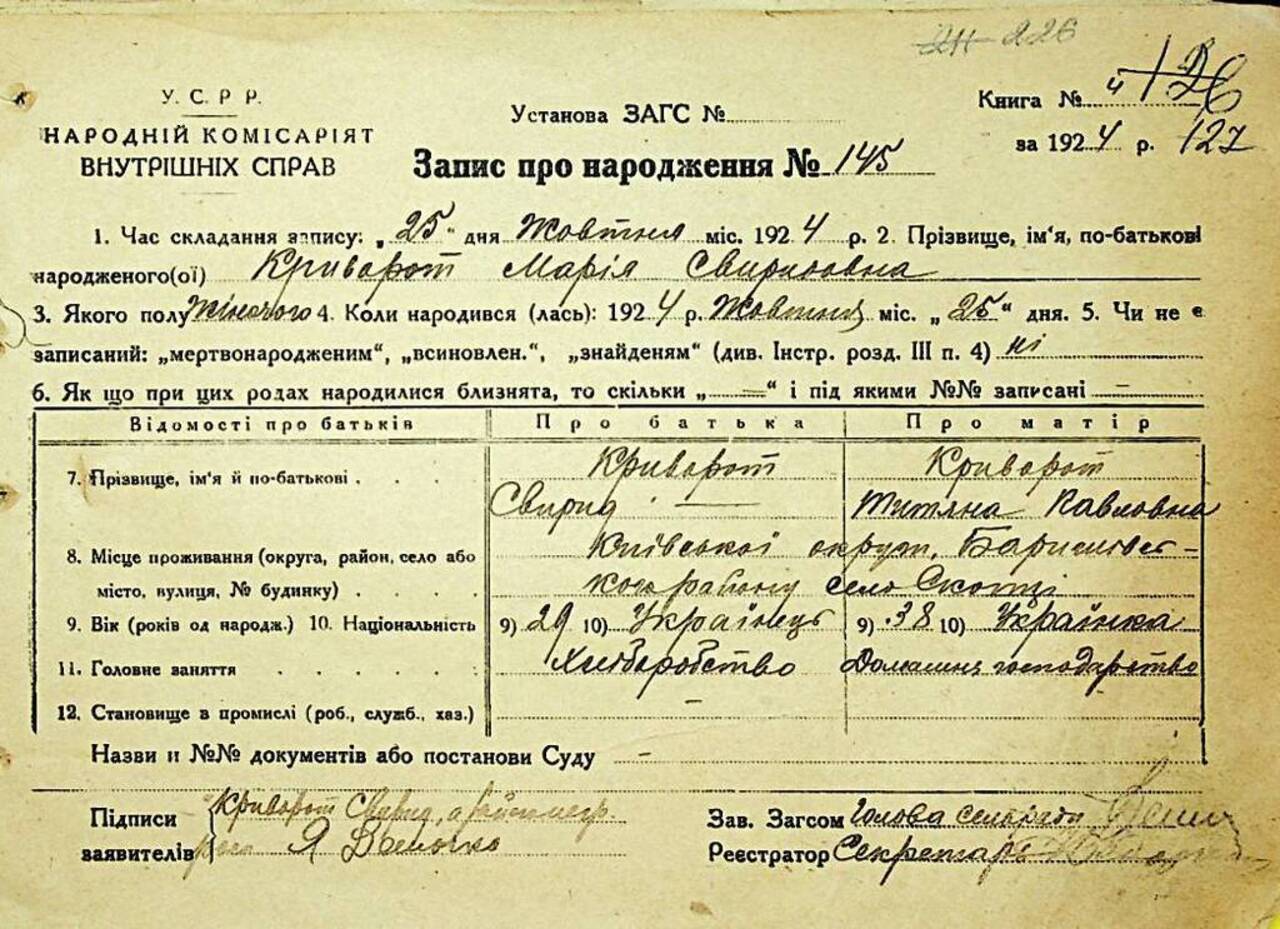 211 226
У. С. Р. Р.
НАРОДНІЙ КОМІСАРІЯТ
ВНУТРІШНІХ СПРАВ
Установа ЗАГС №
Книга № 4 126
за 1924 р. 127
Запис про народження № 145
1. Час складання запису: „25" дня Жовтня міс. 1924 р. 2. Прізвище, ім'я, по-батькові
народженого(ої) Криворот Марія Свиридовна
3. Якого полу Жіночого 4. Коли народився (лась): 1924 р. Жовтня міс. „25" дня. 5. Чи не є
записаний: „мертвонародженим", „всиновлен.", „знайденям" (див. Інстр. розд. III п. 4) ні
6. Як що при цих родах народилися близнята, то скільки „—" і під якими №№ записані —
Відомості про батьків Про батька Про матір
7. Прізвище, ім'я й по-батькові . . . . Криворот Криворот
Свирид — Титяна Павловна
8. Місце проживання (округа, район, село або Київської округи, Баришівсь-
місто, вулиця, № будинку) . . . . кого району село Скопці
9. Вік (років од народж.) 10. Національність 9) 29 10) Українець 9) 38 10) Українка
11. Головне заняття . . . . . Хліборобство Домашнє господарство
12. Становище в промислі (роб., служб., хаз.) —
Назви и №№ документів або постанови Суду —
Підписи Криворот Свирид, а
заявителів Я
Зав. Загсом Голова сельради
Реєстратор Секретарь